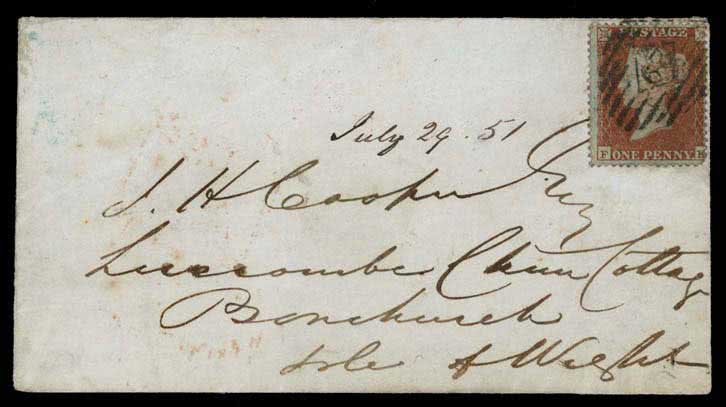 POSTAGE
ONE PENNY
July 29. 51
J. H Cooper Esq
Luccombe Chine Cottage
Bonchurch
Isle of Wight